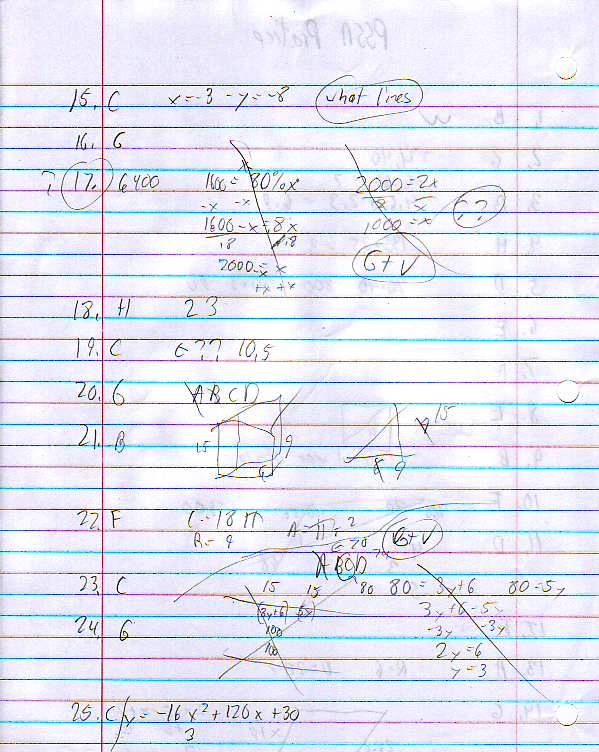 15. C x=-3 -y=-8 what lines
16. G
? 17. 6400 1600= 80%x 2000=2x
-x -x ??
1600-x=.8x 1000=x
.8 .8 G+V
2000=x
+x +x
18. H 23
19. C ?? 10,5
20. G ABCD
21. B 15 9 6 15 8 9
22. F C=18π A=π 2
R=9 G+V
ABCD
23. C 15 15 80 80=3y+6 80=5y
(3y+6) (5x) 3y+6-5y
24. G 100 -3y -3y
100 2y=6
y=3
25. C y=-16x²+120x+30
3